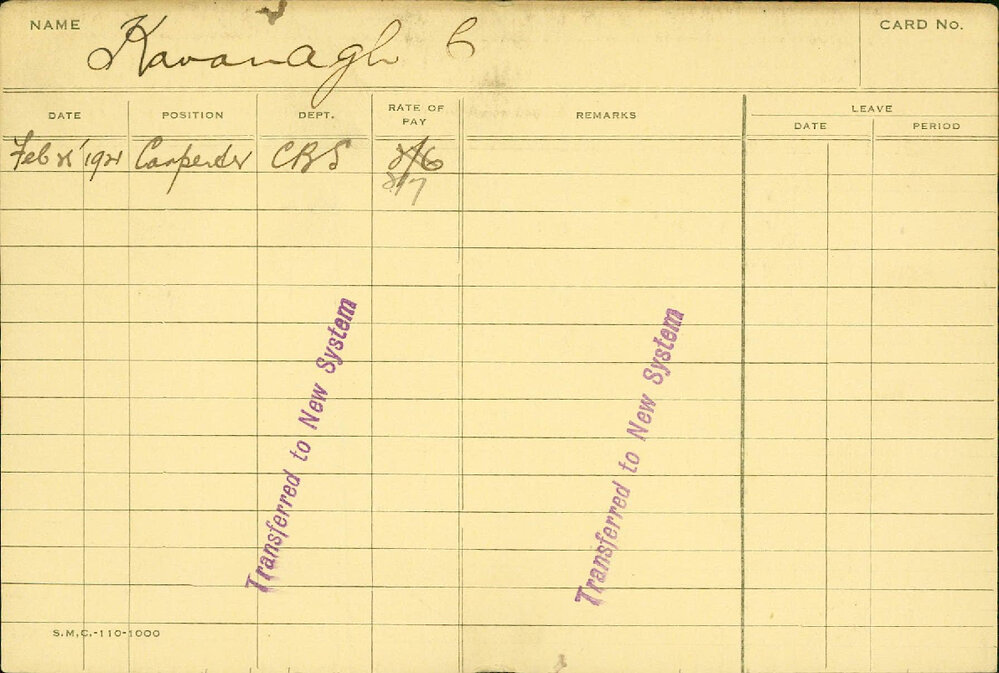 NAME Kavanagh C CARD No.
DATE POSITION DEPT. RATE OF PAY REMARKS LEAVE
DATE PERIOD
Feb 21 1921 Carpenter CBS
Transferred to New System
Transferred to New System
S.M.C.-110-1000